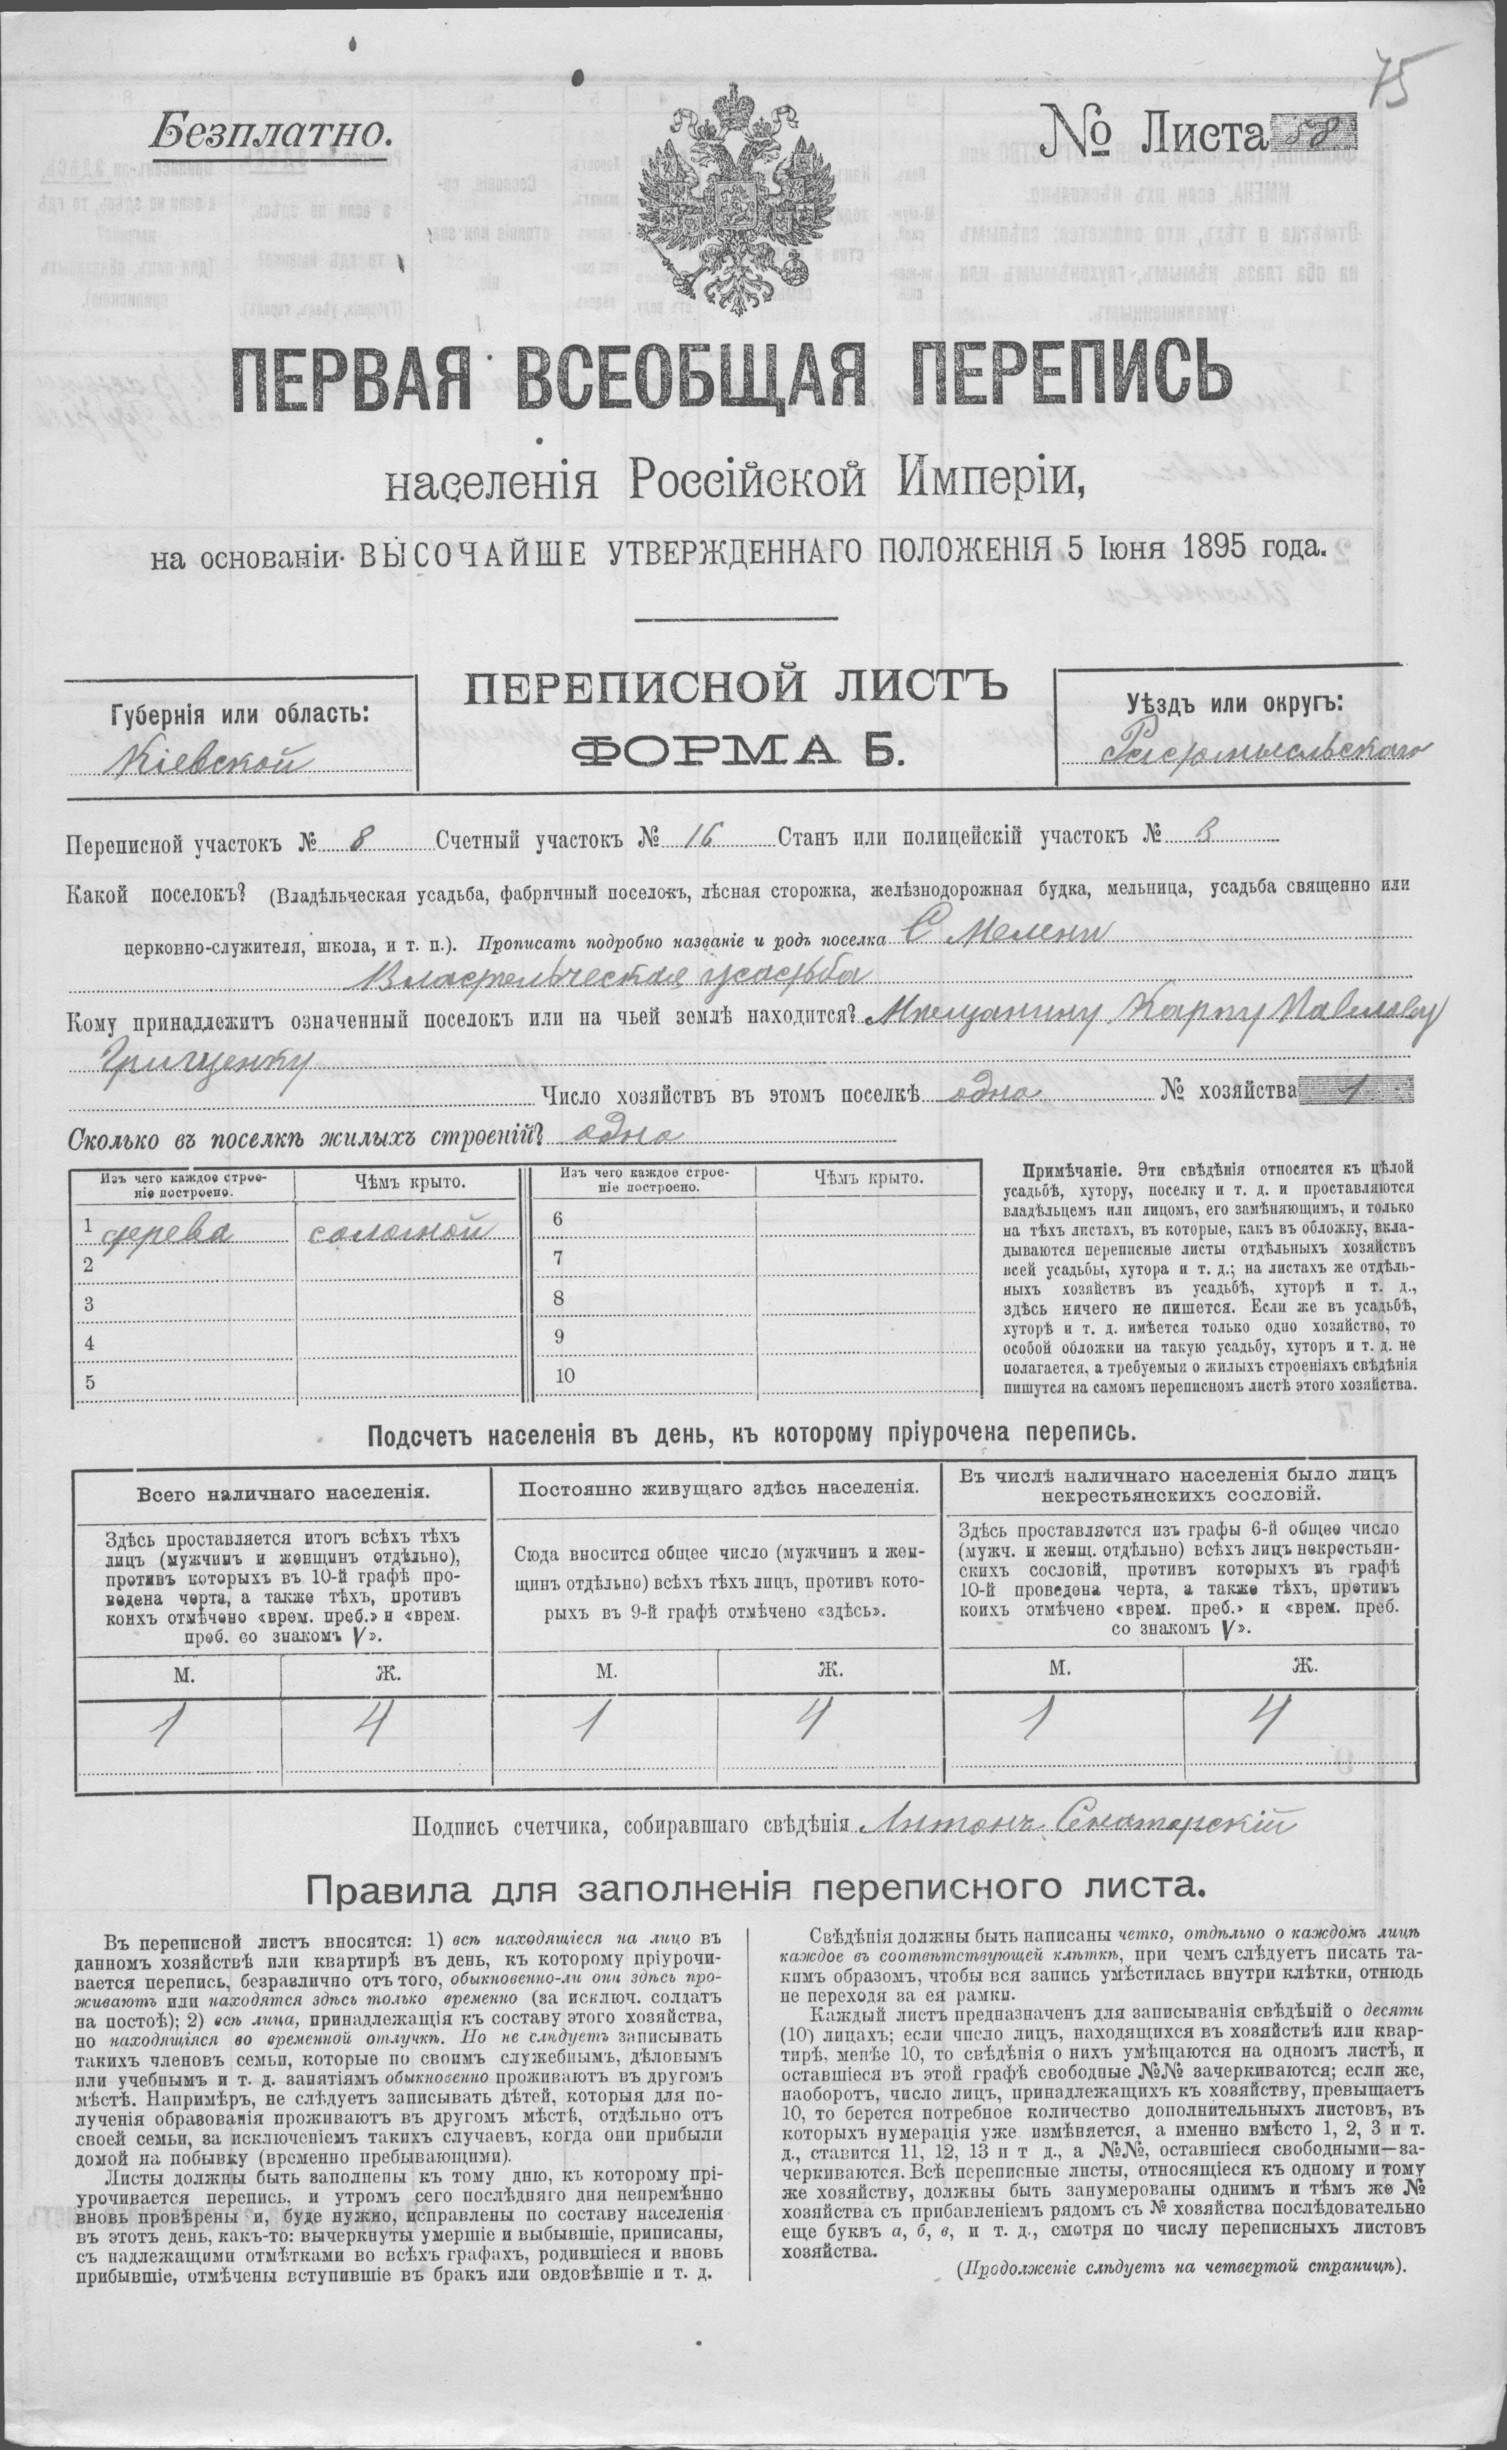 75
Безплатно.
№ Листа 58
ПЕРВАЯ ВСЕОБЩАЯ ПЕРЕПИСЬ
населенія Россійской Имперіи,
на основаніи ВЫСОЧАЙШЕ УТВЕРЖДЕННАГО ПОЛОЖЕНІЯ 5 Іюня 1895 года.
ПЕРЕПИСНОЙ ЛИСТЪ
ФОРМА Б.
Губернія или область:
Кіевской
Уѣздъ или округъ:
Радомысльскаго
Переписной участокъ № 8 Счетный участокъ № 16 Станъ или полицейскій участокъ № 3
Какой поселокъ? (Владѣльческая усадьба, фабричный поселокъ, лѣсная сторожка, желѣзнодорожная будка, мельница, усадьба священно или
церковно-служителя, школа, и т. п.). Прописать подробно названіе и родъ поселка С Мелени
Владѣльческая усадьба
Кому принадлежитъ означенный поселокъ или на чьей землѣ находится? Мѣщанину Карпу Павлову
Грищенку
Число хозяйствъ въ этомъ поселкѣ одно № хозяйства 1
Сколько въ поселкѣ жилыхъ строеній? одно
Изъ чего каждое строе-
ніе построено.
Чѣмъ крыто.
1 дерева соломой
2
3
4
5
Изъ чего каждое строе-
ніе построено.
Чѣмъ крыто.
6
7
8
9
10
Примѣчаніе. Эти свѣдѣнія относятся къ цѣлой
усадьбѣ, хутору, поселку и т. д. и проставляются
владѣльцемъ или лицомъ, его замѣняющимъ, и только
на тѣхъ листахъ, въ которые, какъ въ обложку, вкла-
дываются переписные листы отдѣльныхъ хозяйствъ
всей усадьбы, хутора и т. д.; на листахъ же отдѣль-
ныхъ хозяйствъ въ усадьбѣ, хуторѣ и т. д.,
здѣсь ничего не пишется. Если же въ усадьбѣ,
хуторѣ и т. д. имѣется только одно хозяйство, то
особой обложки на такую усадьбу, хуторъ и т. д. не
полагается, а требуемыя о жилыхъ строеніяхъ свѣдѣнія
пишутся на самомъ переписномъ листѣ этого хозяйства.
Подсчетъ населенія въ день, къ которому пріурочена перепись.
Всего наличнаго населенія.
Здѣсь проставляется итогъ всѣхъ тѣхъ
лицъ (мужчинъ и женщинъ отдѣльно),
противъ которыхъ въ 10-й графѣ про-
ведена черта, а также тѣхъ, противъ
коихъ отмѣчено «врем. преб.» и «врем.
преб. со знакомъ V».
М. Ж.
1 4
Постоянно живущаго здѣсь населенія.
Сюда вносится общее число (мужчинъ и жен-
щинъ отдѣльно) всѣхъ тѣхъ лицъ, противъ кото-
рыхъ въ 9-й графѣ отмѣчено «здѣсь».
М. Ж.
1 4
Въ числѣ наличнаго населенія было лицъ
некрестьянскихъ сословій.
Здѣсь проставляется изъ графы 6-й общее число
(мужч. и женщ. отдѣльно) всѣхъ лицъ некрестьян-
скихъ сословій, противъ которыхъ въ графѣ
10-й проведена черта, а также тѣхъ, противъ
коихъ отмѣчено «врем. преб.» и «врем. преб.
со знакомъ V».
М. Ж.
1 4
Подпись счетчика, собиравшаго свѣдѣнія Антонъ Снатарскій
Правила для заполненія переписного листа.
Въ переписной листъ вносятся: 1) всѣ находящіеся на лицо въ
данномъ хозяйствѣ или квартирѣ въ день, къ которому пріурочи-
вается перепись, безразлично отъ того, обыкновенно-ли они здѣсь про-
живаютъ или находятся здѣсь только временно (за исключ. солдатъ
на постоѣ); 2) всѣ лица, принадлежащія къ составу этого хозяйства,
но находящіяся во временной отлучкѣ. Но не слѣдуетъ записывать
такихъ членовъ семьи, которые по своимъ служебнымъ, дѣловымъ
или учебнымъ и т. д. занятіямъ обыкновенно проживаютъ въ другомъ
мѣстѣ. Напримѣръ, не слѣдуетъ записывать дѣтей, которыя для по-
лученія образованія проживаютъ въ другомъ мѣстѣ, отдѣльно отъ
своей семьи, за исключеніемъ такихъ случаевъ, когда они прибыли
домой на побывку (временно пребывающими).
Листы должны быть заполнены къ тому дню, къ которому прі-
урочивается перепись, и утромъ сего послѣдняго дня непремѣнно
вновь провѣрены и, буде нужно, исправлены по составу населенія
въ этотъ день, какъ-то: вычеркнуты умершіе и выбывшіе, приписаны,
съ надлежащими отмѣтками во всѣхъ графахъ, родившіеся и вновь
прибывшіе, отмѣчены вступившіе въ бракъ или овдовѣвшіе и т. д.
Свѣдѣнія должны быть написаны четко, отдѣльно о каждомъ лицѣ
каждое въ соотвѣтствующей клѣткѣ, при чемъ слѣдуетъ писать та-
кимъ образомъ, чтобы вся запись умѣстилась внутри клѣтки, отнюдь
не переходя за ея рамки.
Каждый листъ предназначенъ для записыванія свѣдѣній о десяти
(10) лицахъ; если число лицъ, находящихся въ хозяйствѣ или квар-
тирѣ, менѣе 10, то свѣдѣнія о нихъ умѣщаются на одномъ листѣ, и
оставшіеся въ этой графѣ свободные №№ зачеркиваются; если же,
наоборотъ, число лицъ, принадлежащихъ къ хозяйству, превышаетъ
10, то берется потребное количество дополнительныхъ листовъ, въ
которыхъ нумерація уже измѣняется, а именно вмѣсто 1, 2, 3 и т.
д., ставится 11, 12, 13 и т д., а №№, оставшіеся свободными—за-
черкиваются. Всѣ переписные листы, относящіеся къ одному и тому
же хозяйству, должны быть занумерованы однимъ и тѣмъ же №
хозяйства съ прибавленіемъ рядомъ съ № хозяйства послѣдовательно
еще буквъ а, б, в, и т. д., смотря по числу переписныхъ листовъ
хозяйства.
(Продолженіе слѣдуетъ на четвертой страницѣ).